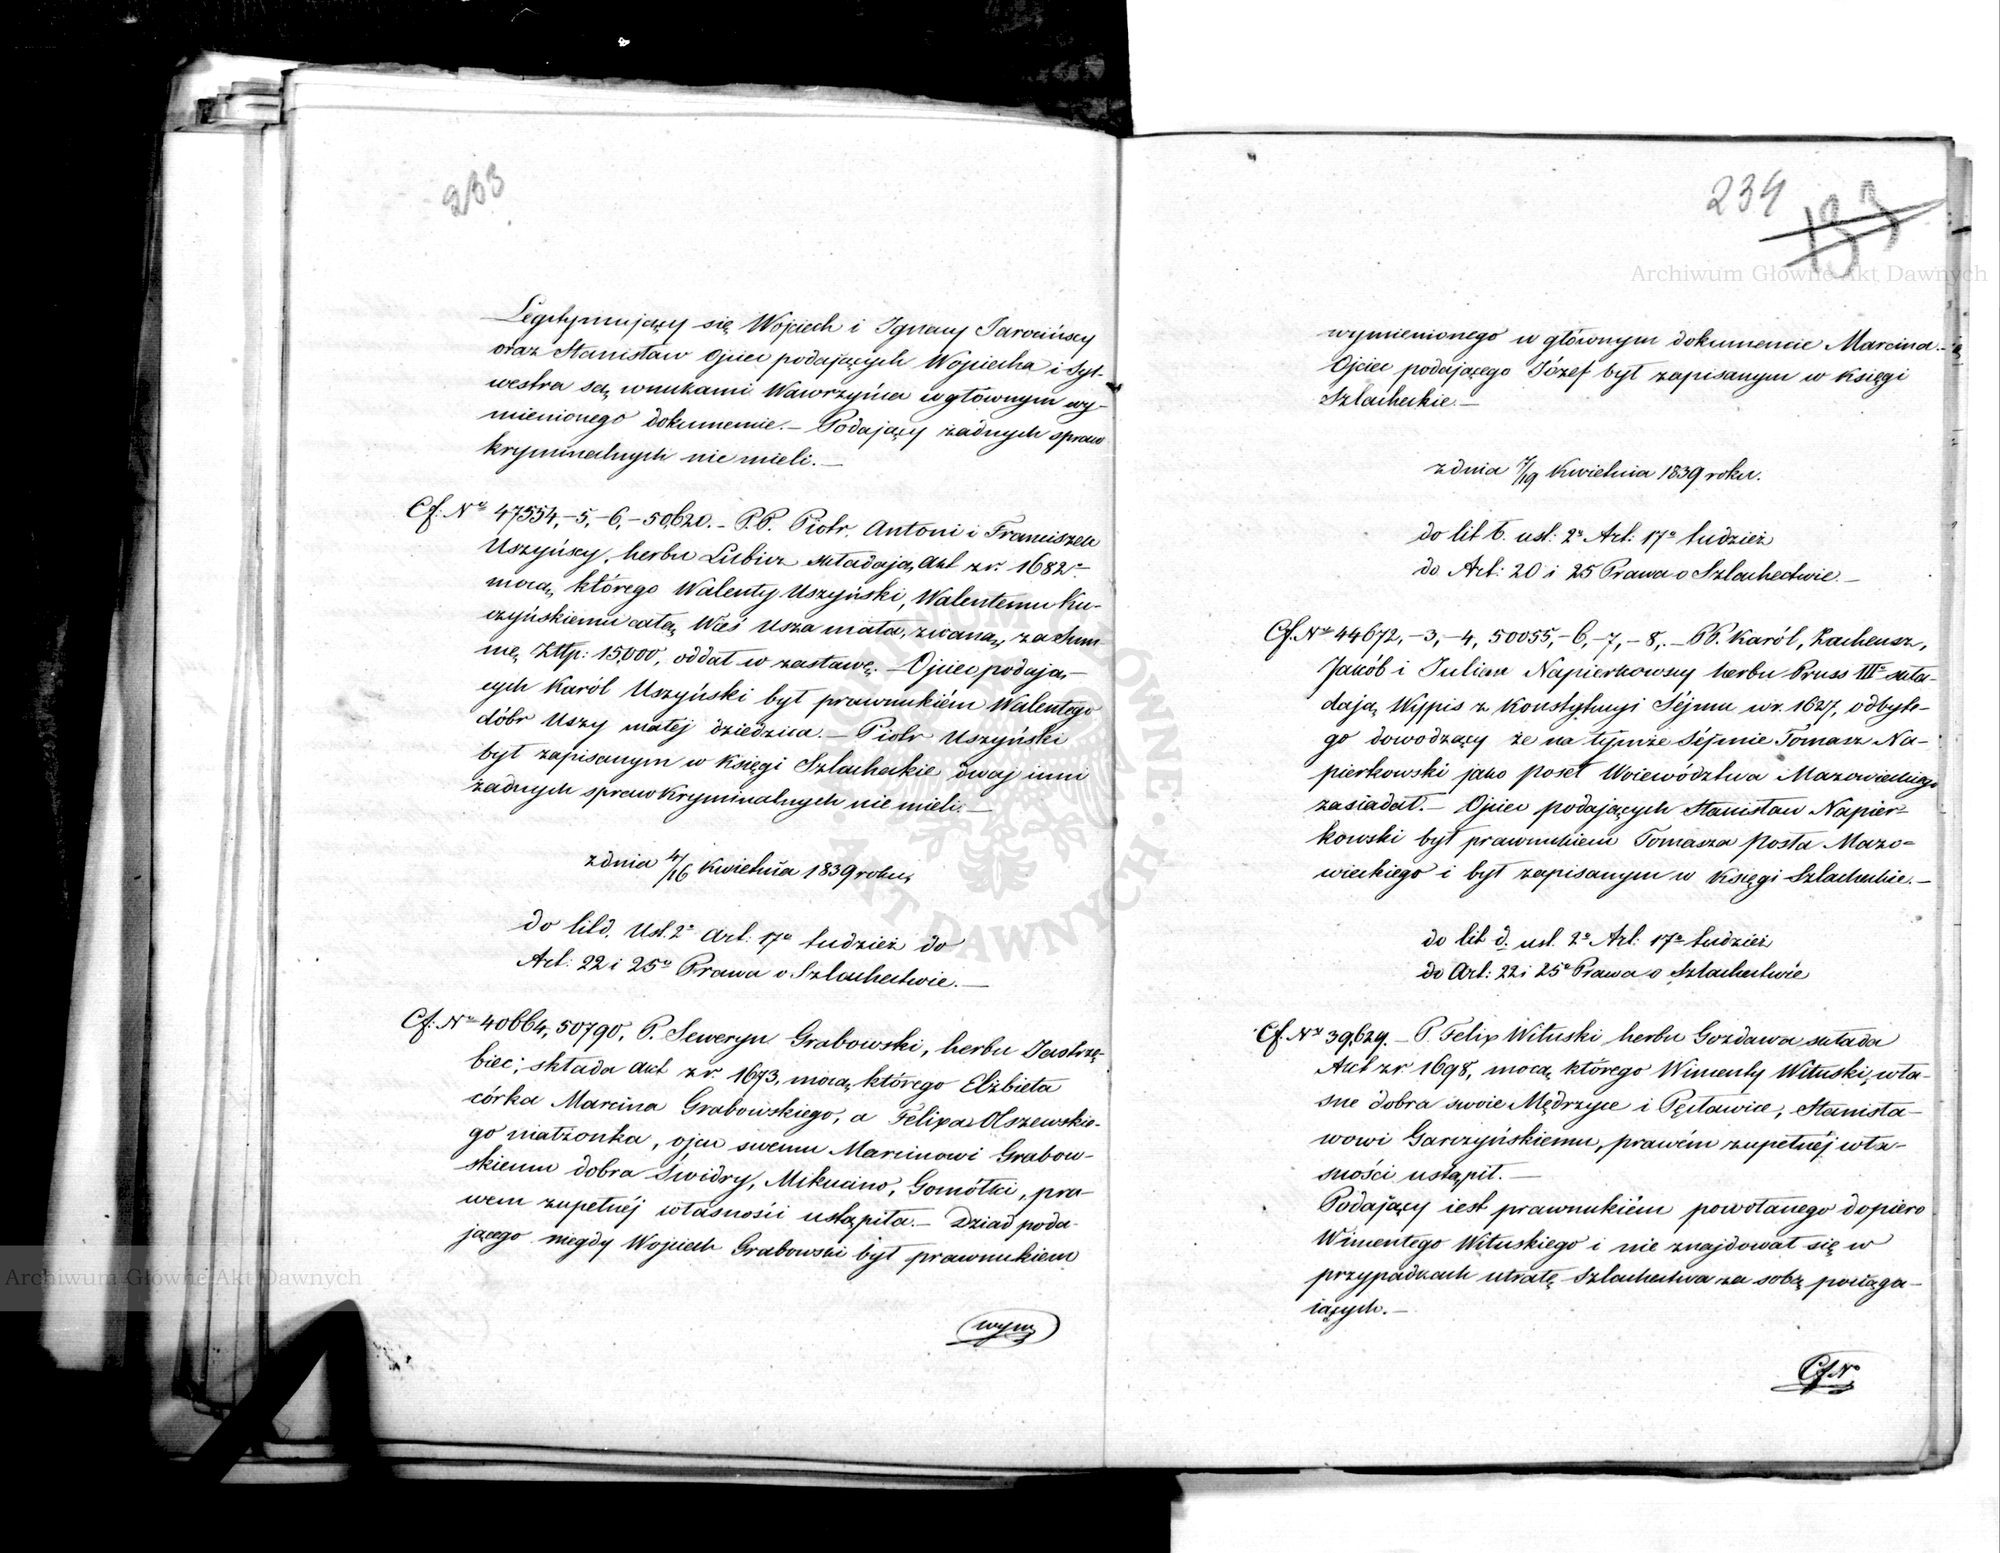 233
Legitymujący się Wojciech i Ignacy Jarocińscy
oraz Stanisław Ojciec podających Wojciecha i Syl-
westra są wnukami Wawrzyńca w głównym wy-
mienionego dokumencie. — Podający żadnych spraw
kryminalnych nie mieli. —
Cf: Nr 47554, -5, -6, - 50,620. - P.P. Piotr, Antoni i Franciszek
Uszyńscy, herbu Lubicz składają Akt z r. 1682o
mocą, którego Walenty Uszyński, Walentemu Ku-
czyńskiemu całą Wieś Usza mała, zwaną, za Sum-
mę Złtp: 15,000, oddał w zastawę. — Ojciec podają-
cych Karól Uszyński był prawnukiém Walentego
dóbr Uszy małej dziedzica. — Piotr Uszyński
był zapisanym w Księgi Szlacheckie, dwaj inni
żadnych spraw Kryminalnych nie mieli. —
z dnia 4/16 Kwietnia 1839 roku,
do lit d. Ust. 2o Art: 17o tudzież do
Art: 22 i 25o Prawa o Szlachectwie. —
Cf: Nr 40664, 50790, P. Seweryn Grabowski, herbu Jastrzę-
biec; składa Akt z r. 1673, mocą którego Elżbieta
córka Marcina Grabowskiego, a Felixa Olszewskie-
go małżonka, ojcu swemu Marcinowi Grabow-
skiemu dobra Swidry, Mikucino, Gomółki, pra-
wem zupełnéj własności ustąpiła. — Dziad poda-
jącego niegdy Wojciech Grabowski był prawnukiem
wym
234
133
Archiwum Główne Akt Dawnych
wymienionego w głównym dokumencie Marcina. —
Ojciec podającego Józef był zapisanym w Księgi
Szlacheckie. —
z dnia 7/19 Kwietnia 1839 roku.
do lit b. ust: 2o Art: 17o tudzież
do Art: 20 i 25 Prawa o Szlachectwie. —
Cf. Nr 44672, -3, -4, 50055, -6, -7, -8, — PP. Karól,
Jakób i Julian Napierkowscy herbu Pruss IIIo skła-
dają Wypis z Konstytucyi Séjmu w r. 1627, odbyte-
go dowodzący że na tymże Séjmie Tomasz Na-
pierkowski jako poseł Woiewództwa Mazowieckiego
zasiadał. — Ojciec podających Stanisław Napier-
kowski był prawnukiem Tomasza Posła Mazo-
wieckiego i był zapisanym w Księgi Szlacheckie. —
do lit d. ust. 2o Art: 17o tudzież
do Art: 22 i 25o Prawa o Szlachectwie
Cf. Nr 39,629. — P. Felix Wituski herbu Gozdawa składa
Akt z r 1698, mocą którego Wincenty Wituski, wła-
sne dobra swoie Mędrzyce i Pęsławice, Stanisła-
wowi Garczyńskiemu, prawém zupełnéj wła-
sności ustąpił. —
Podający iest prawnukiém powołanego dopiero
Wincentego Wituskiego i nie znajdował się w
przypadkach utratę Szlachectwa za sobą pociąga-
iących. —
Cf Nr
Archiwum Główne Akt Dawnych
GŁÓWNE · AKT DAWNYCH ·